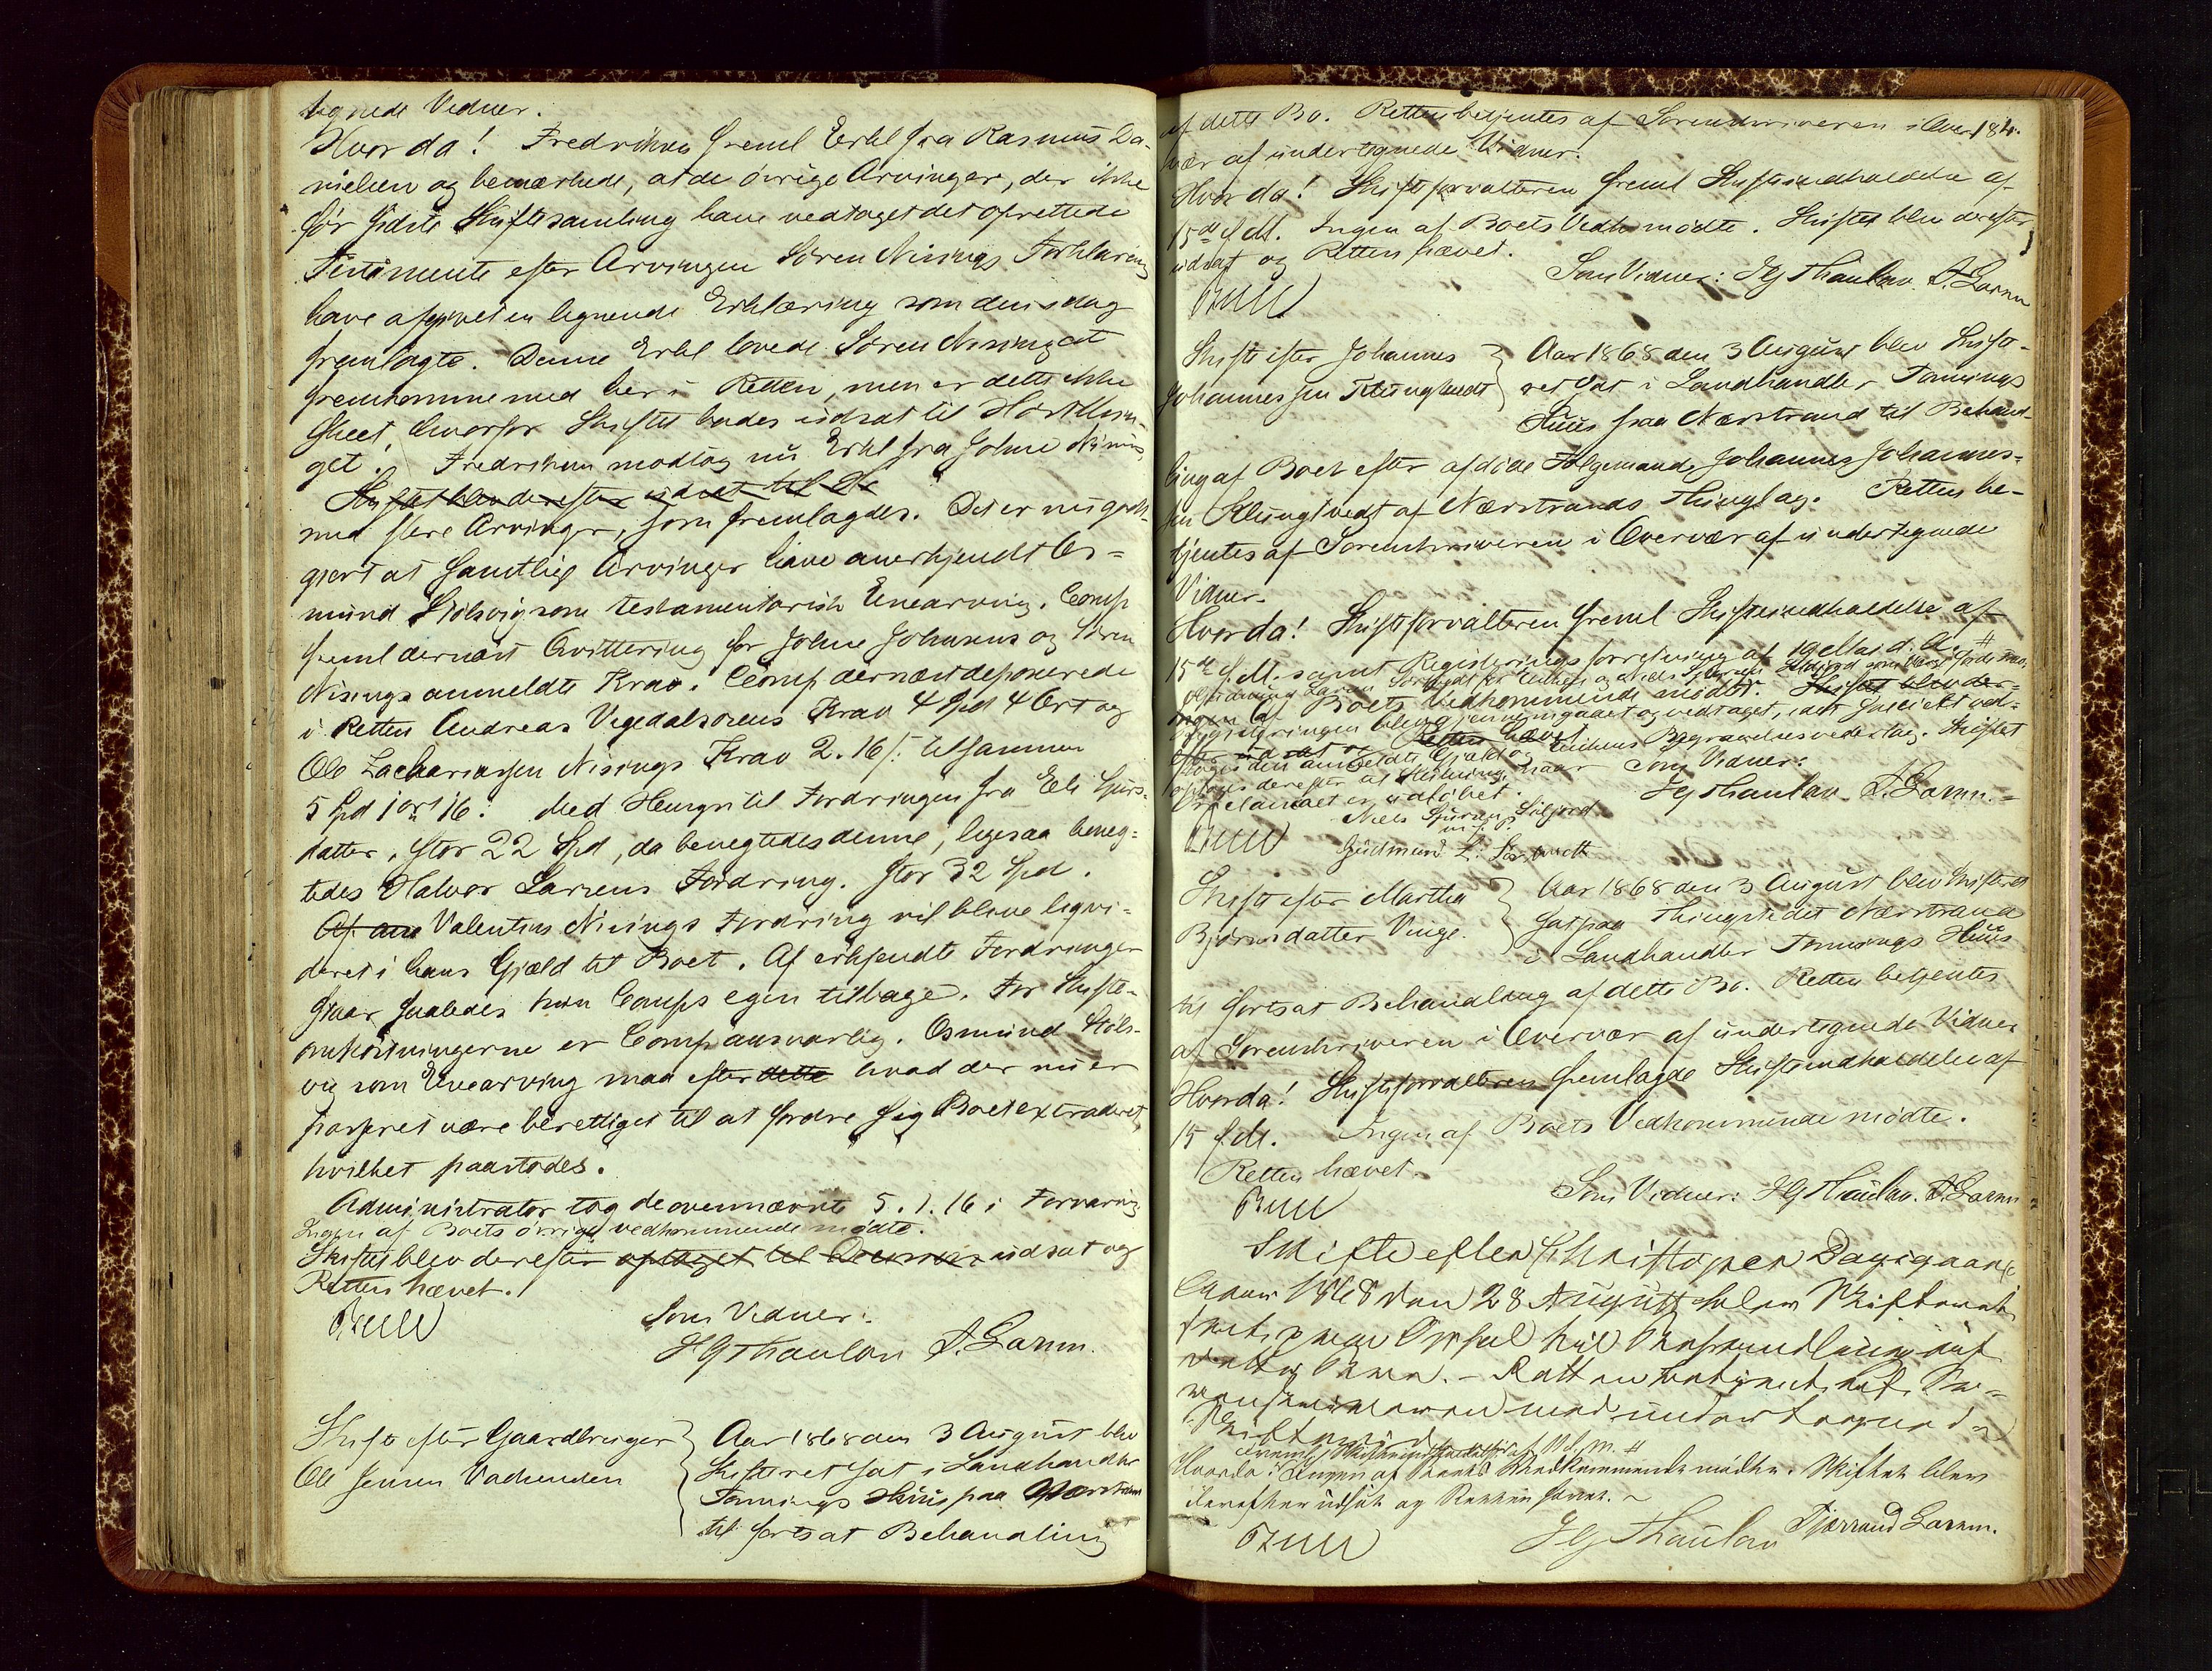 tegnede Vidner.
Hvorda! Fredriksen freml Erkl fra Rasmus Da-
nielsen og bemærkede, at de övrige Arvinger, der ikke
för sidste Skiftesamling have vedtaget det oprettede
Testamente efter Arvingen Sören Nisings Forklaring
have afgivet en lignende Erklæring som den idag
fremlagte. Denne Erkl lovede Sören Nising at
fremkomme med her i Retten, men er dette ikke
skeet, hvorfor Skiftet bedes udsat til
get! Fredriksen modtog nu Erkl fra Johne Nising
Skiftet blev derefter udsat til
med flere Arvinger, som fremlagdes. Det er nu godt-
gjort at samtlige Arvinger have anerkjendt Os-
mund Stölsvig som testamentarisk Enearving. Comp
freml dernæst Qvittering for Johne Johnsens og Sören
Nisings anmeldte Krav. Comp dernæst deponerede
i Retten Andreas Vegedalsosens Krav 4 Spd 4 Ort og
Ole Zachariassen Nisings Krav 2. 16 s. tilsammen
5 Spd 1 ort 16. Med Hensyn til Fordringen fra Eli Sjurs-
datter, stor 22 Spd, da benegtedes denne, ligesaa beneg-
tedes Halvor Larsens Fordring. stor 32 Spd.
Af Valentins Nisings Fordring vil blive liqvi-
deret i hans Gjæld til Boet. Af erkjendte Fordringer
staar saaledes kun Comps egen tilbage. For Skifte-
omkostningerne er Comp ansvarlig. Osmund Stöls-
vig som Enearving maa efter dette hvad der nu er
passeret være berettiget til at fordre sig Boet extraderet,
hvilket paastodes.
Administrator tog de ovennævnte 5. 1. 16 i Forvaring
Ingen af Boets övrige vedkommende mödte.
Skiftet blev derefter optaget til Decision udsat og
Retten hævet.
Bull
Som Vidner:
HG Thaulow T. Garmn.
Skift efter Gaardbruger
Ole Jensen
Aar 1868 den 3 August blev
Skifteret sat i Landhandler
Tonnings Huus paa Nærstrand
til fortsat Behandling
af dette Bo. Retten betjentes af Sorenskriveren i Over- 184.
vær af undertegnede Vidner.
Hvorda! Skifteforvalteren freml Skifteindkaldelse af
15de f. M. Ingen af Boets Vedk mödte. Skiftet blev derefter
udsat og Retten hævet.
Som Vidner: HG Thaulow. T. Garmn
Bull
Skift efter Johannes
Johannessen Klungtvedt
Aar 1868 den 3 August blev Skifte-
ret sat i Landhandler Tonnings
Huus paa Nærstrand til Behand-
ling af Boet efter afdöde Fölgemand Johannes Johannes-
sen Klungtvedt af Nærstrands Thinglag. Retten be-
tjentes af Sorenskriveren i Overvær af undertegnede
Vidner.
Hvorda! Skifteforvalteren freml Skifteindkaldelse af
15de f. M. samt Registreringsforretning af 19 Mai d. A. #
Ingen af Boets Vedkommende mödte. Skiftet blev der-
Registreringen blev gjennemgaaet og vedtaget,
efter udsat og Retten hævet
den anmeldte Gjæld og Enkens Begravelsesvederlag. Skiftet
optages derefter til Slutning, naar
Proclamaet er udlöbet.
Som Vidner:
HG Thaulow T. Garmn.
Niels Siljord
m. p. P.
Bull
Gudmund L.
Skift efter Martha
Björnsdatter Vinge.
Aar 1868 den 3 August blev Skifteret
sat paa Thingstedet Nærstrand
i Landhandler Tonnings Huus
til fortsat Behandling af dette Bo. Retten betjentes
af Sorenskriveren i Overvær af undertegnede Vidner
Hvorda! Skifteforvalteren fremlagde Skifteindkaldelse af
15 f. M. Ingen af Boets Vedkommende mödte.
Retten hævet.
Som Vidner: HG Thaulow. T. Garmn
Bull
Skifte efter Christopher Dagsgaard
Aar 1868 den 28 August blev Skifteret
sat paa til Behandling af
dette Bo. – Retten betjent af So-
renskriveren med undertegnede
Hvorda! Ingen af Boets Vedkommende mödte. Skiftet blev
derefter udsat og Retten hævet. ~
Bull
HG Thaulow Tjærrand Garmn.